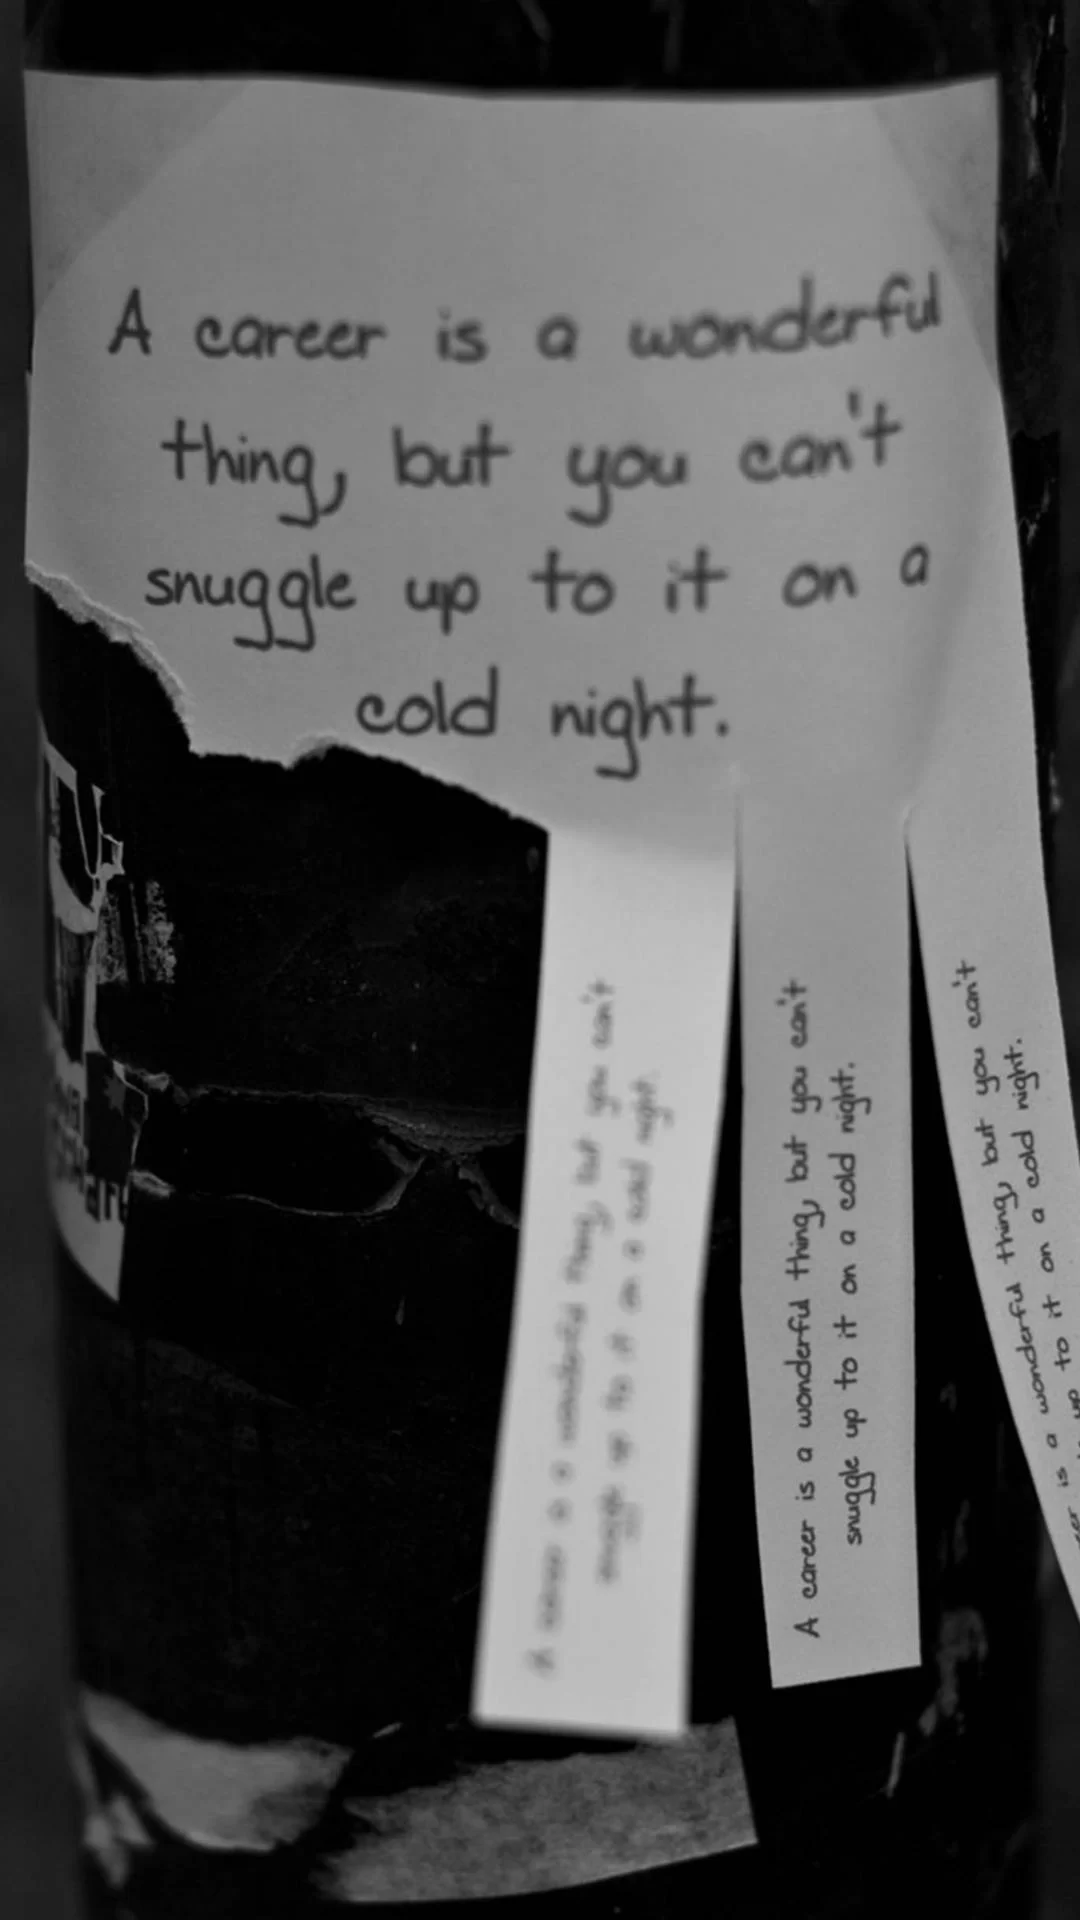 A career is a wonderful
thing, but you can't
snuggle up to it on a
cold night.
A career is a wonderful thing, but you can't
snuggle up to it on a cold night.
A career is a wonderful thing, but you can't
snuggle up to it on a cold night.
is a wonderful thing, but you can't
up to it on a cold night.